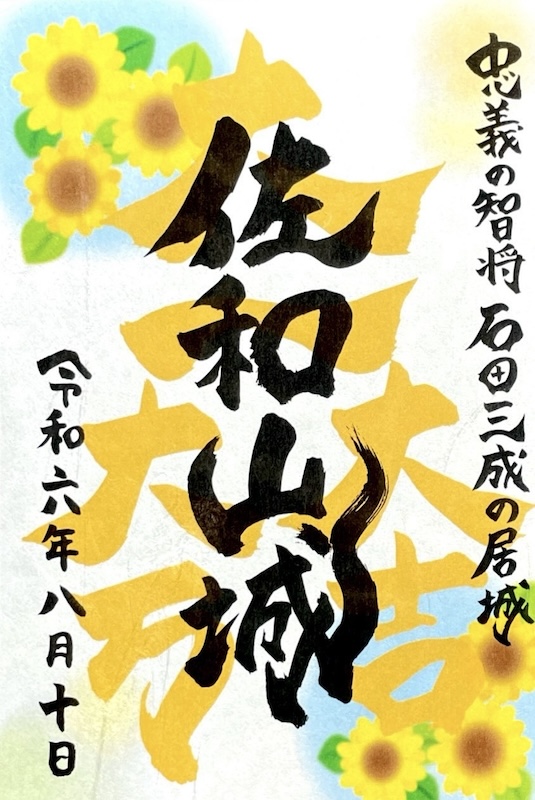 忠義の智将 石田三成の居城
佐和山城
大一大万大吉
令和六年八月十日